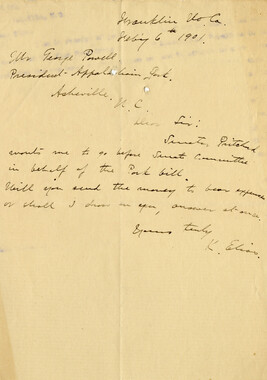 Franklin No Ca.
Feby 6th 1901.
Mr. George Powell.
President - Appalachian Park.
Asheville,
N. C.
Dear Sir:
Senator Pritchard
wants me to go before Senate Committee
in behalf of the Park bill.
Will you send the money to bear expenses
or shall I draw on you, answer at once.
Yours truly
K. Elias.